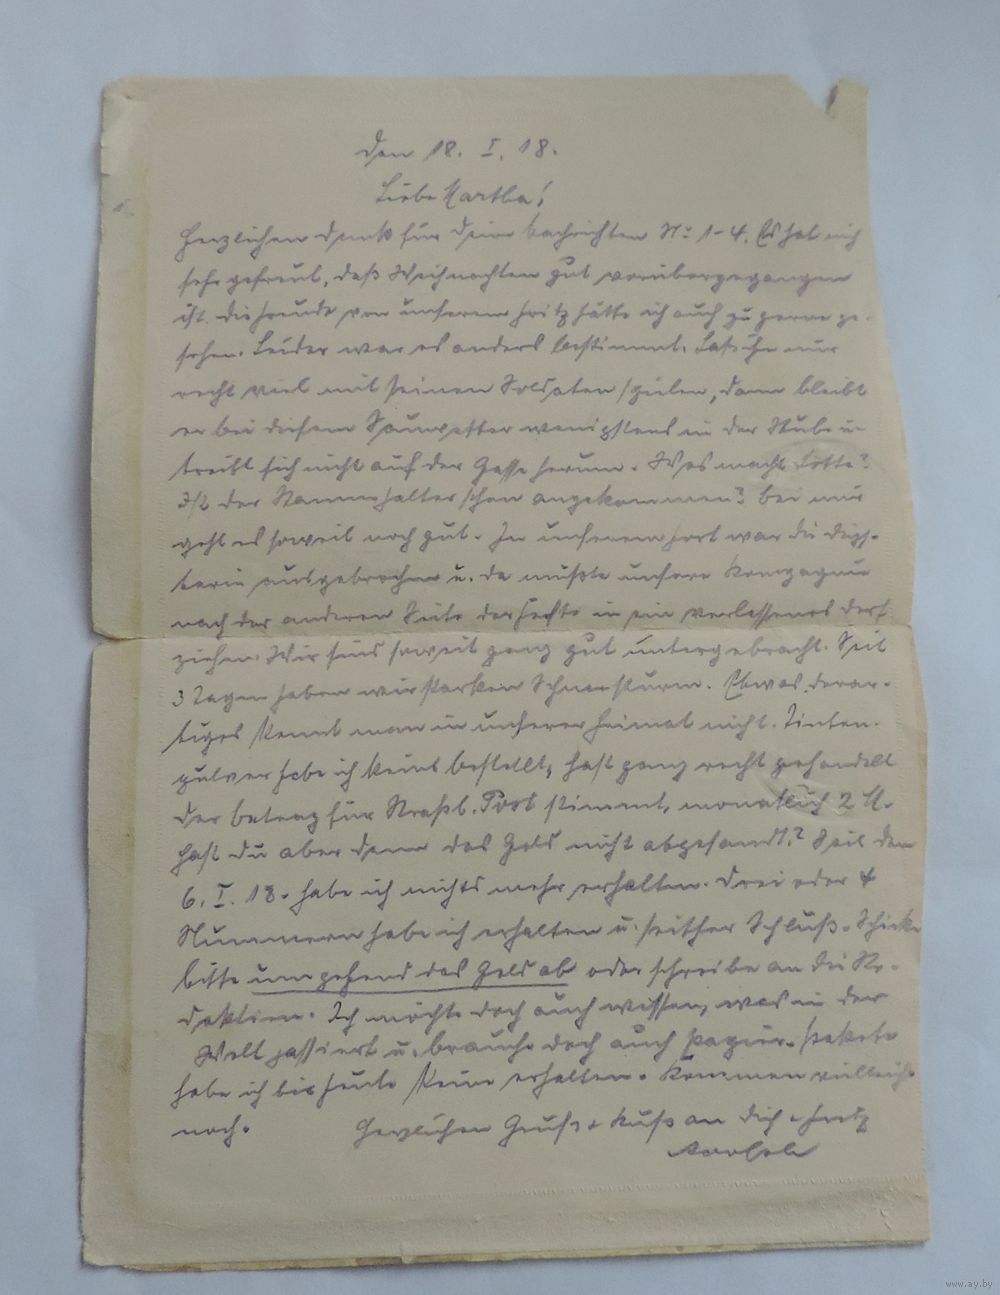 Den 18. I. 18.
Liebe Martha!
Herzlichen Dank für Deine Nachrichten No 1-4. Es hat mich
sehr gefreut, daß Weihnachten gut vorübergegangen
ist. Die Freude von unserem Fritz hätte ich auch zu gerne ge-
sehen. Leider war es anders bestimmt. Laß ihn nur
recht viel mit seinen Soldaten spielen, dann bleibt
er bei diesem Sauwetter wenigstens in der Stube u.
treibt sich nicht auf der Gasse herum. Was macht Lotte?
Ist der Stammhalter schon angekommen? Bei mir
geht es soweit noch gut. In unserem Fort war die Diph-
terie ausgebrochen u. da mußte unsere Kompagnie
nach der anderen Seite der in ein verlassenes Dorf
ziehen. Wir sind soweit ganz gut untergebracht. Seit
3 Tagen haben wir starken Schneesturm. Etwas derar-
tiges kennt man in unserer Heimat nicht. Tinten-
pulver habe ich keins bestellt, hast ganz recht gehandelt
Der Betrag für Straßb. Post stimmt, monatlich 2 M.
Hast Du aber denn das Geld nicht abgesandt? Seit dem
6. I. 18. habe ich nichts mehr erhalten. Drei oder 4
Nummern habe ich erhalten u. seither Schluß. Schicke
bitte umgehend das Geld ab oder schreibe an die Re-
daktion. Ich möchte doch auch wissen, was in der
Welt passiert u. brauche doch auch Papier. Pakete
habe ich bis heute keine erhalten. Kommen vielleicht
noch. Herzlichen Gruß + Kuß an Dich + Fritz
www.ay.by